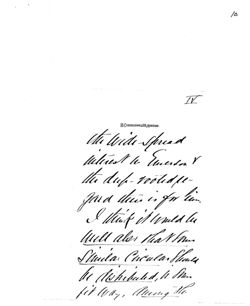 10
IV.
32 Commonwealth Avenue
the wide-spread
interest in Emerson &
the deep-rooted re-
gard there is for him.
I think it would be
well also that some
similar circular should
be distributed, in some
fit way, among the